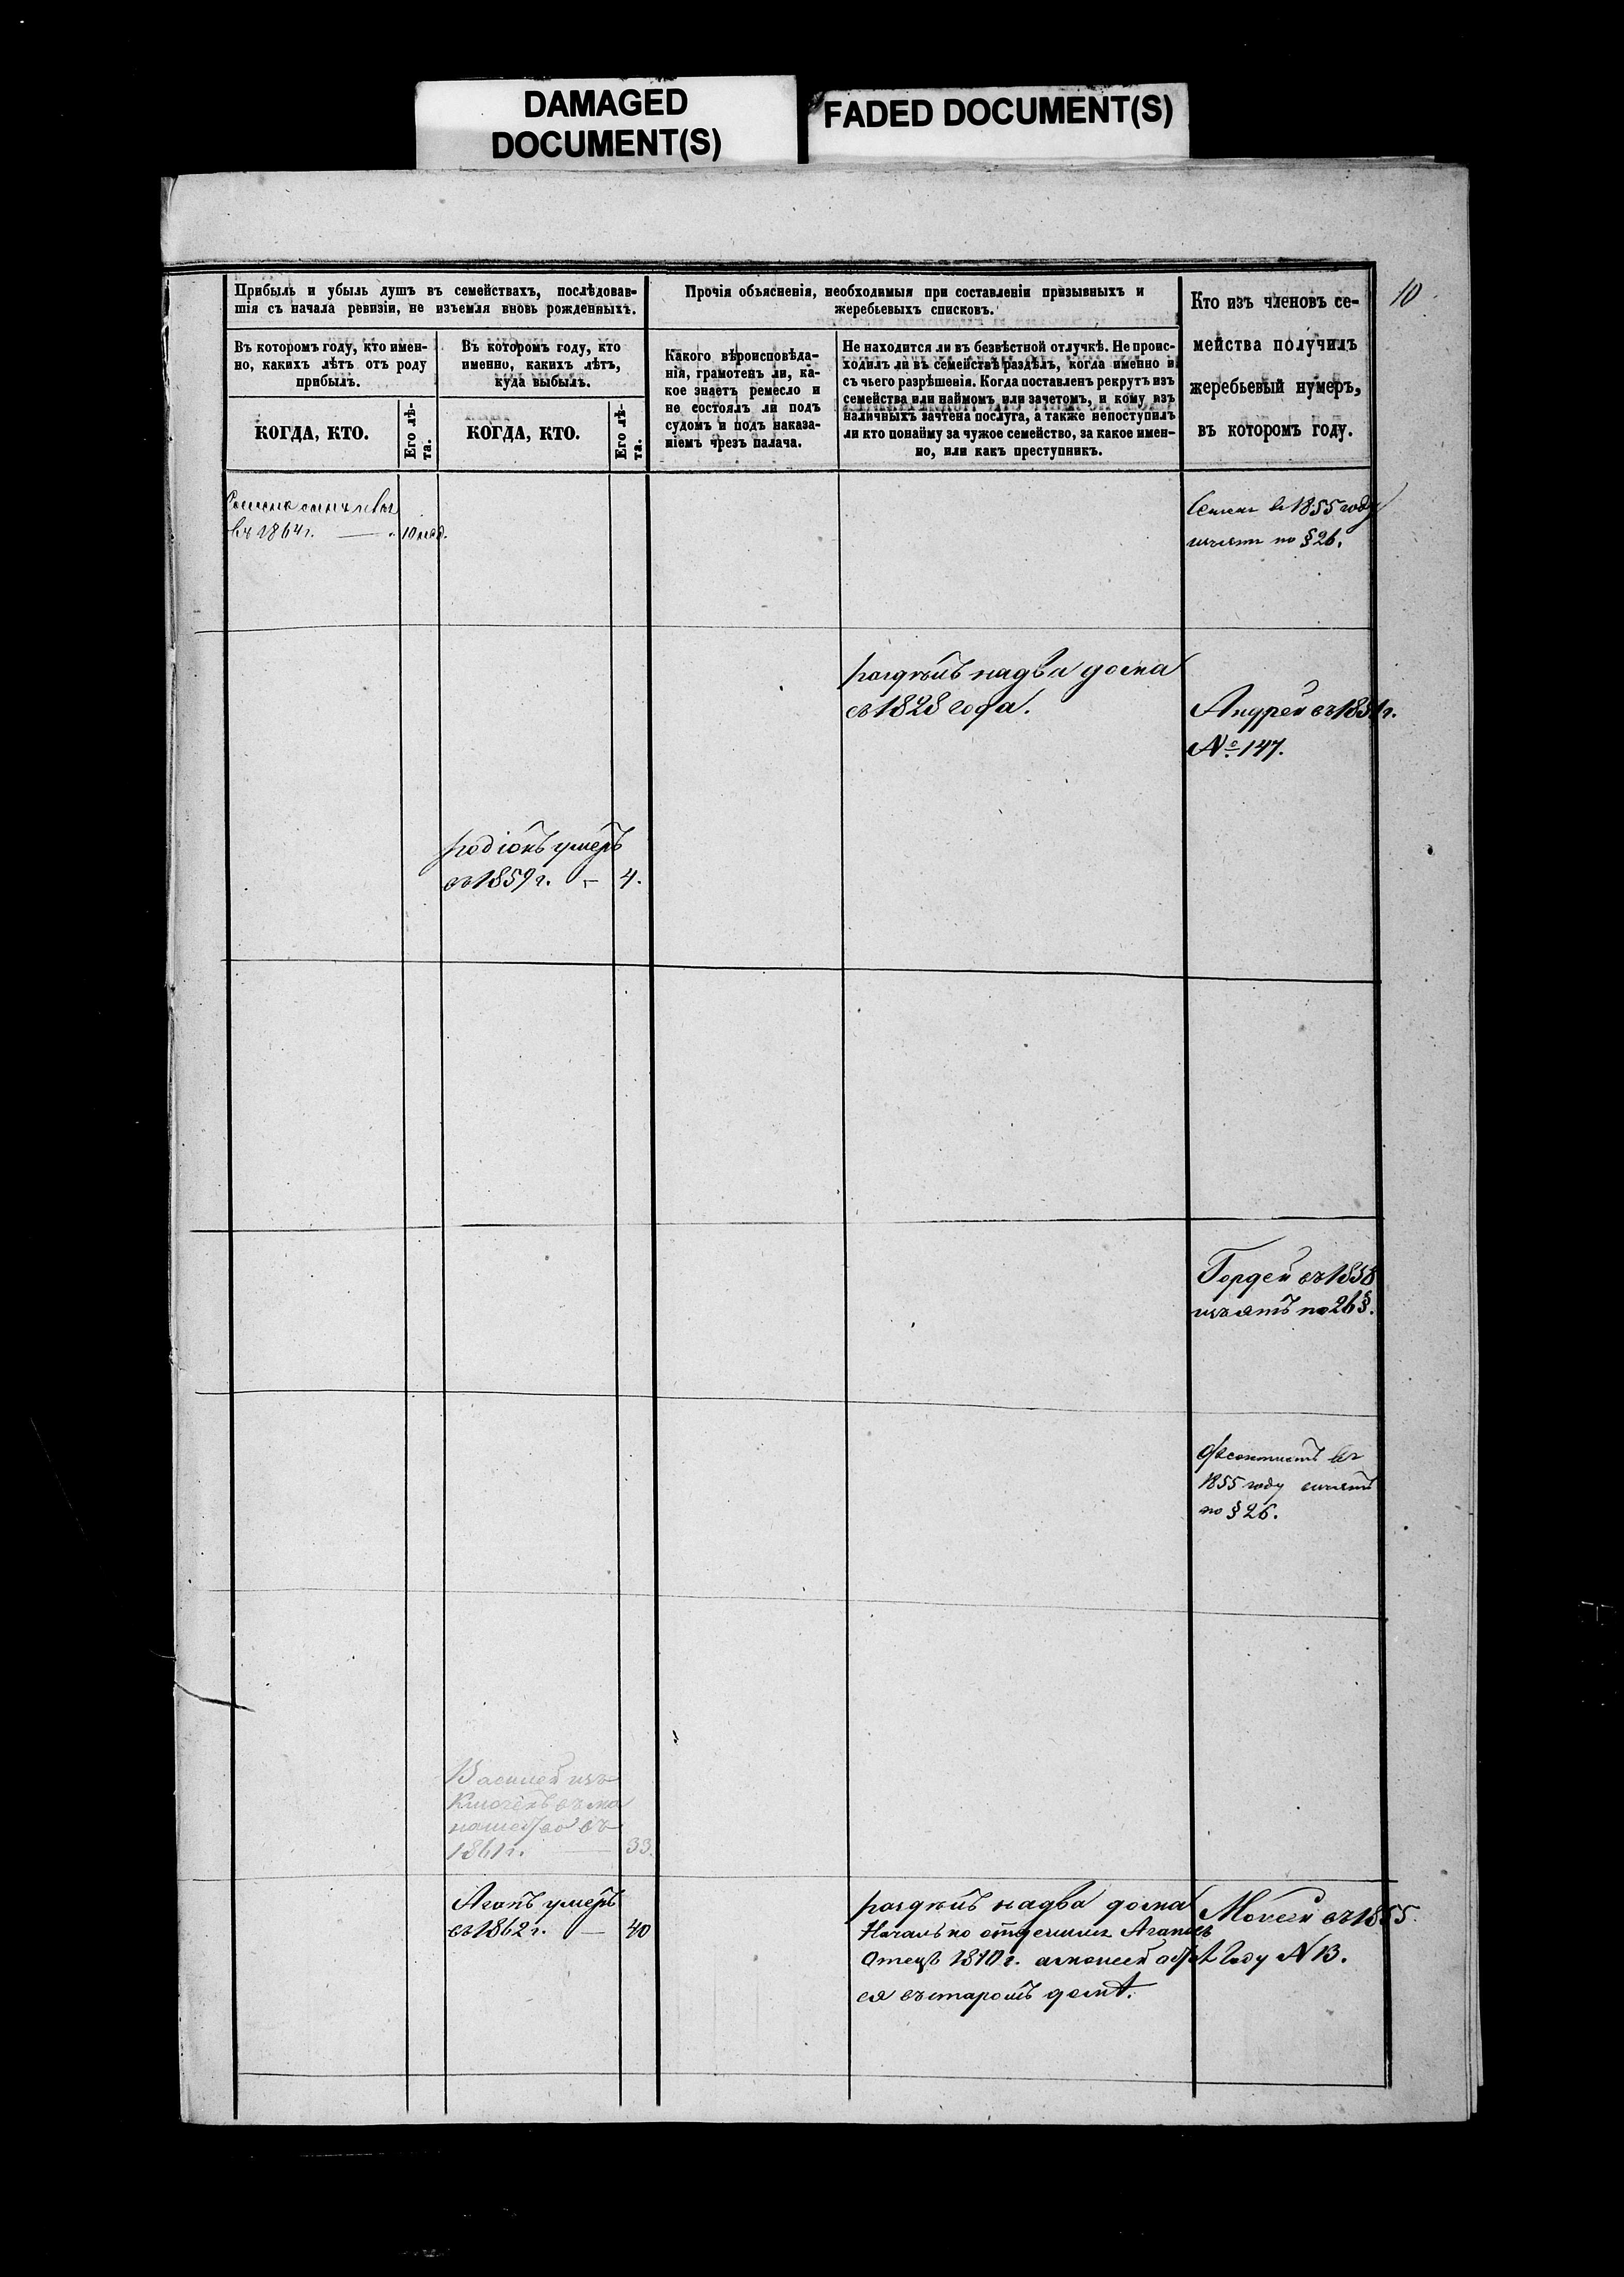 DAMAGED
DOCUMENT(S)
FADED DOCUMENT(S)
10
Прибыль и убыль душъ въ семействахъ, послѣдовав-
шія съ начала ревизіи, не изъемля вновь рожденныхъ.
Прочія объясненія, необходимыя при составленіи призывныхъ и
жеребьевыхъ списковъ.
Кто изъ членовъ се-
мейства получилъ
жеребьевый нумеръ,
въ которомъ году.
Въ которомъ году, кто имен-
но, какихъ лѣтъ отъ роду
прибылъ.
Въ которомъ году, кто
именно, какихъ лѣтъ,
куда выбылъ.
Какого вѣроисповѣда-
нія, грамотенъ ли, ка-
кое знаетъ ремесло и
не состоялъ ли подъ
судомъ и подъ наказа-
ніемъ чрезъ палача.
Не находится ли въ безвѣстной отлучкѣ. Не проис-
ходилъ ли въ семействѣ раздѣлъ, когда именно и
съ чьего разрѣшенія. Когда поставленъ рекрутъ изъ
семейства или наймомъ или зачетомъ, и кому изъ
наличныхъ зачтена послуга, а также непоступилъ
ли кто понайму за чужое семейство, за какое имен-
но, или какъ преступникъ.
КОГДА, КТО.
Его лѣ-
та.
КОГДА, КТО.
Его лѣ-
та.
въ 1864 г. — 10 нед.
въ 1855 году
изъятъ по § 26.
надва дома
въ 1828 года.
Андрей въ 1851 г.
№ 147.
родіонъ умеръ
въ 1859 г. — 4.
Гордей въ 1858
изъятъ по 26 §.
Феоктистъ въ
1855 году изъятъ
по § 26.
Василей изъ
въ
1861 г. — 33.
Агапъ умеръ
въ 1862 г. — 40
надва дома
Отецъ 1810 г.
въ старомъ домѣ.
Мокей въ 1855
Году N 13.